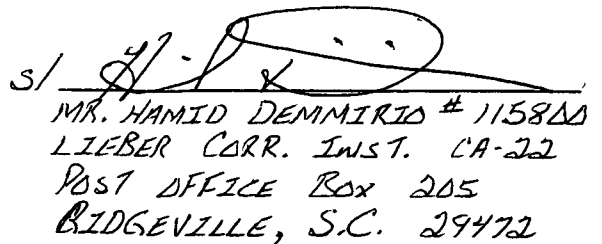 s/
MR. HAMID DEMMIRIO # 115800
LIEBER CORR. INST. CA-22
POST OFFICE BOX 205
RIDGEVILLE, S.C. 29472